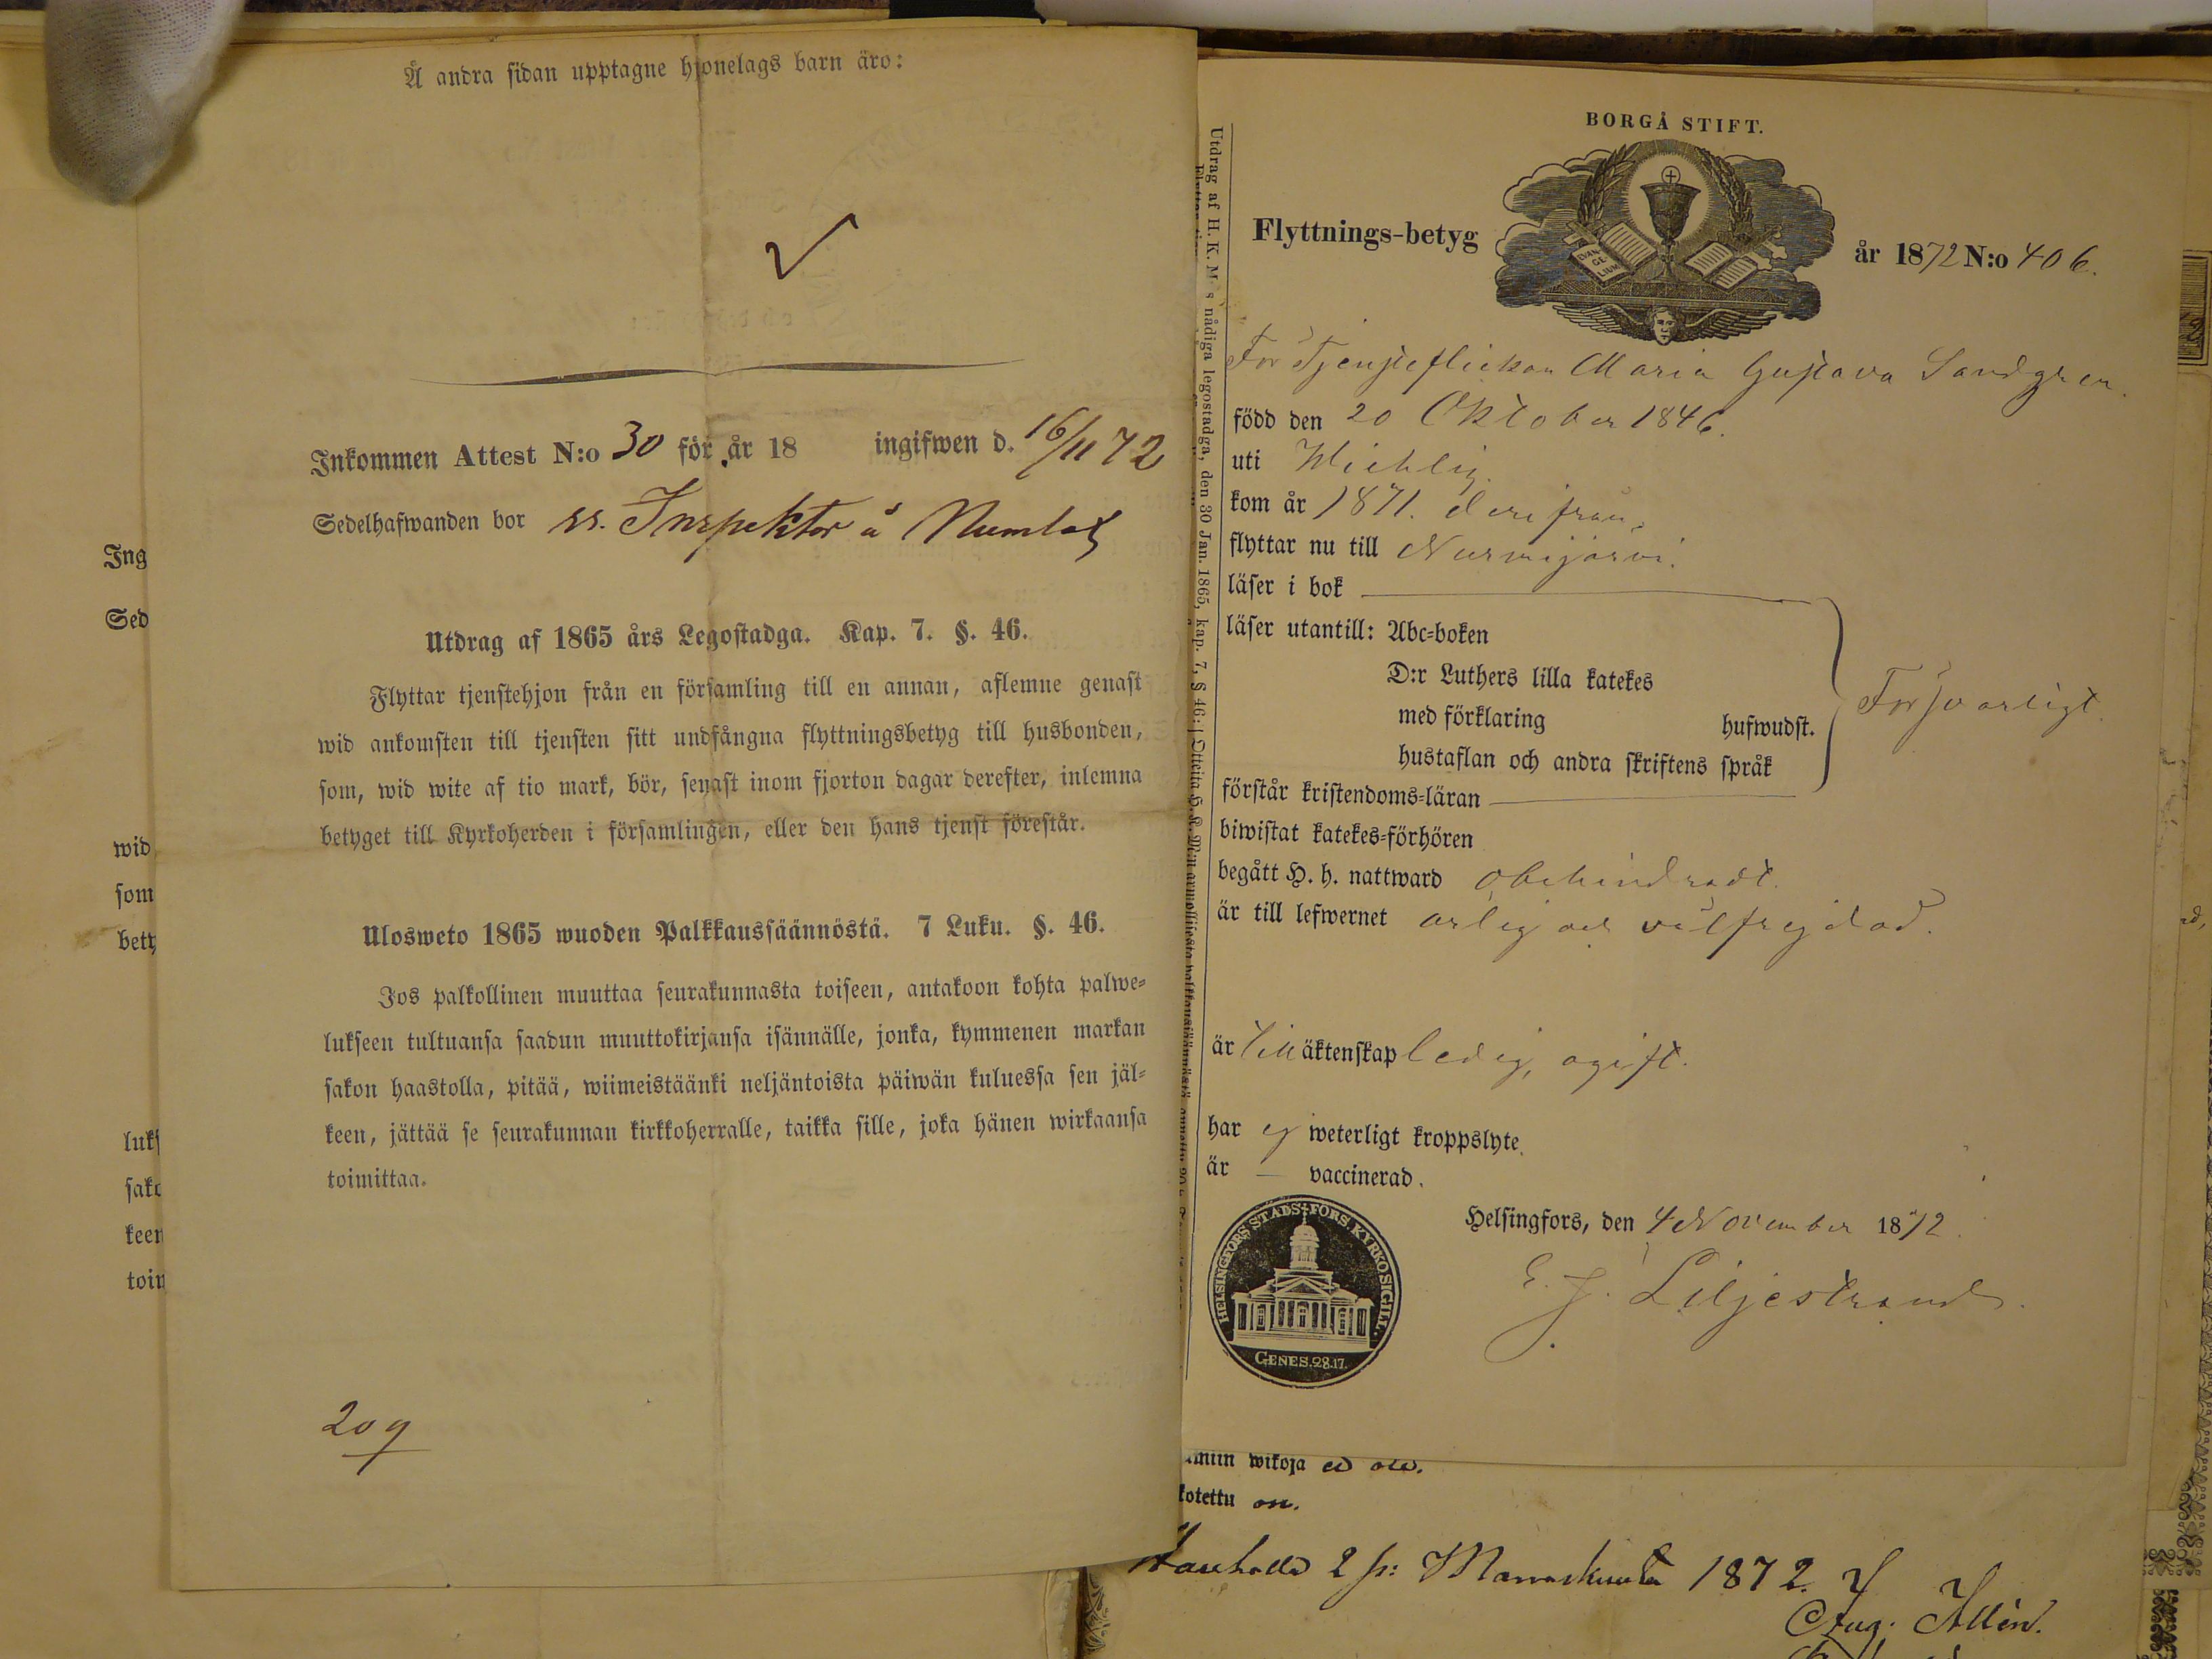 Å andra sidan upptagne hjonelags barn äro:
Inkommen Attest N:o 30 för år 18 ingifwen d. 16/11 72
Sedelhafwanden bor ss. Inspektor å Numlax
Utdrag af 1865 års Legostadga. Kap. 7. §. 46.
Flyttar tjenstehjon från en församling till en annan, aflemne genast
wid ankomsten till tjensten sitt undfångna flyttningsbetyg till husbonden,
som, wid wite af tio mark, bör, senast inom fjorton dagar derefter, inlemna
betyget till Kyrkoherden i församlingen, eller den hans tjenst förestår.
Ulosweto 1865 wuoden Palkkaussäännöstä. 7 Luku. §. 46.
Jos palkollinen muuttaa seurakunnasta toiseen, antakoon kohta palwe-
lukseen tultuansa saadun muuttokirjansa isännälle, jonka, kymmenen markan
sakon haastolla, pitää, wiimeistäänki neljäntoista päiwän kuluessa sen jäl-
keen, jättää se seurakunnan kirkkoherralle, taikka sille, joka hänen wirkaansa
toimittaa.
209
Ing
Sed
wid
som
bety
luks
keen
BORGÅ STIFT.
EVAN
GE
LIUM
Flyttnings-betyg
år 1872 N:o 406.
För Tjensteflickan Maria Gustava Sandgren.
född den 20 Oktober 1846.
uti Wichtis.
kom år 1871. derifrån.
flyttar nu till Nurmijärvi.
läser i bok
läser utantill: Abc-boken
D:r Luthers lilla katekes
med förklaring hufwudst.
hustaflan och andra skriftens språk
Försvarligt.
förstår kristendoms-läran
biwistat katekes-förhören
begått H. h. nattward obehindradt.
är till lefwernet ärlig och välfrejdad.
är till äktenskap ledig, ogift.
har ej weterligt kroppslyte.
är — vaccinerad.
Helsingfors, den 4 November 1872.
E. J. Liljestrand.
HELSINGFORS STADS FÖRS. KYRKOSIGILL.
GENES. 28.17.
Utdrag af H. K. M:s nådiga legostadga, den 30 Jan. 1865, kap. 7, § 46:
wikoja ei ole.
kotettu on.
2 p: Marraskuuta 1872.
Aug. Allén.